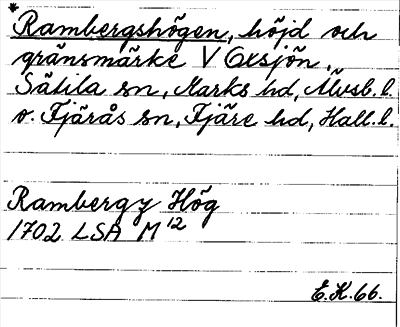 *Rambergshögen, höjd och
gränsmärke V Oxsjön,
Sätila sn, Marks hd, Älvsb.l.
o. Fjärås sn, Fjäre hd, Hall.l.
Rambergz Hög
1702 LSA M12
E.K.66.